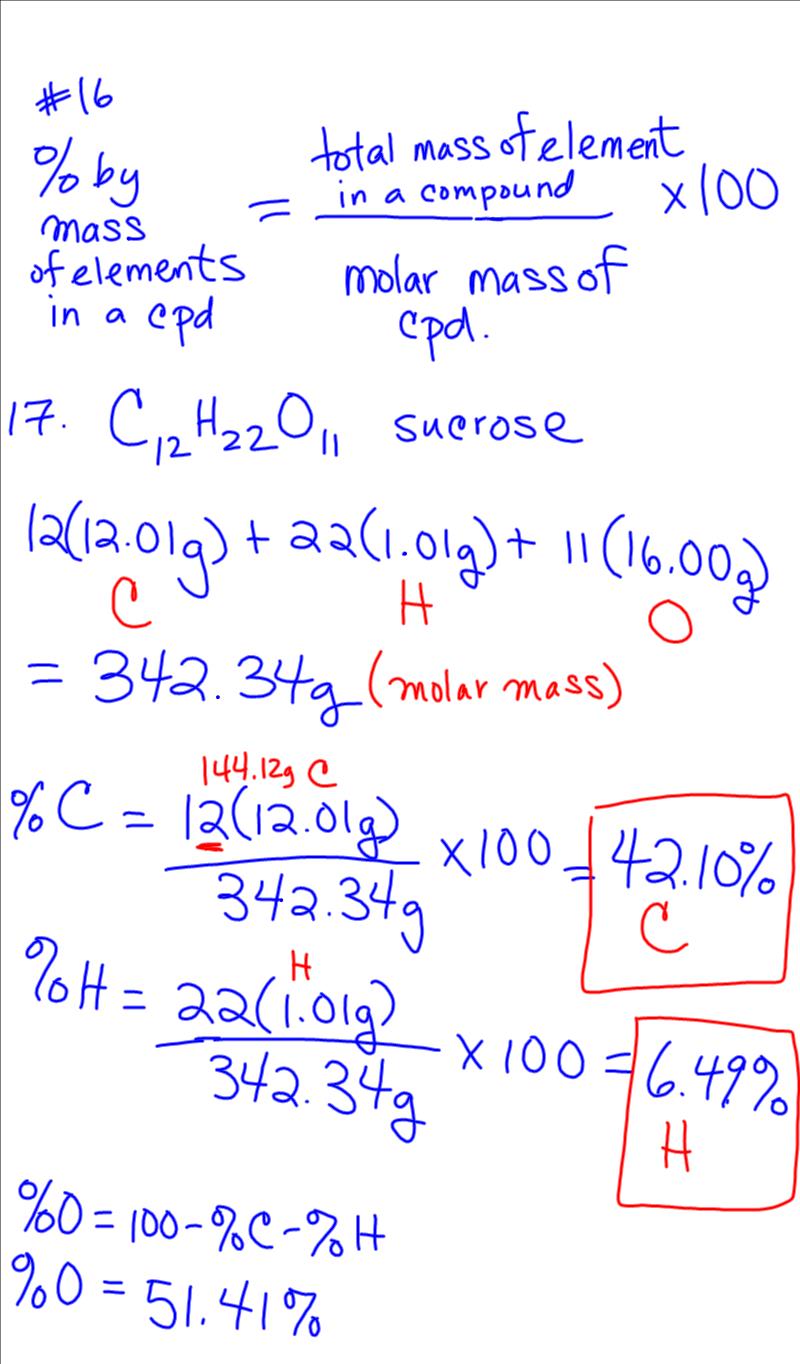 #16
% by mass of elements in a cpd = total mass of element in a compound / molar mass of cpd. x100
17. C₁₂H₂₂O₁₁ sucrose
12(12.01g) + 22(1.01g) + 11(16.00g)
C H O
= 342.34g (molar mass)
144.12g C
%C = 12(12.01g) / 342.34g x100 = 42.10%
C
H
%H = 22(1.01g) / 342.34g x100 = 6.49%
H
%O = 100 - %C - %H
%O = 51.41%